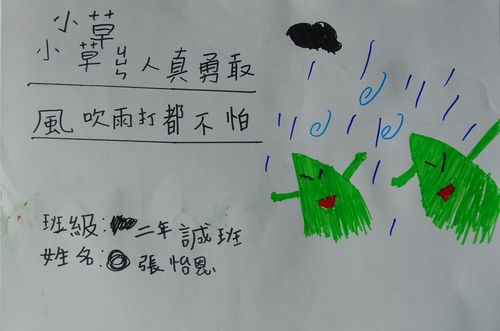 小草
小草ㄐㄩㄣ人真勇敢
風吹雨打都不怕
班級:二年誠班
姓名:張怡恩